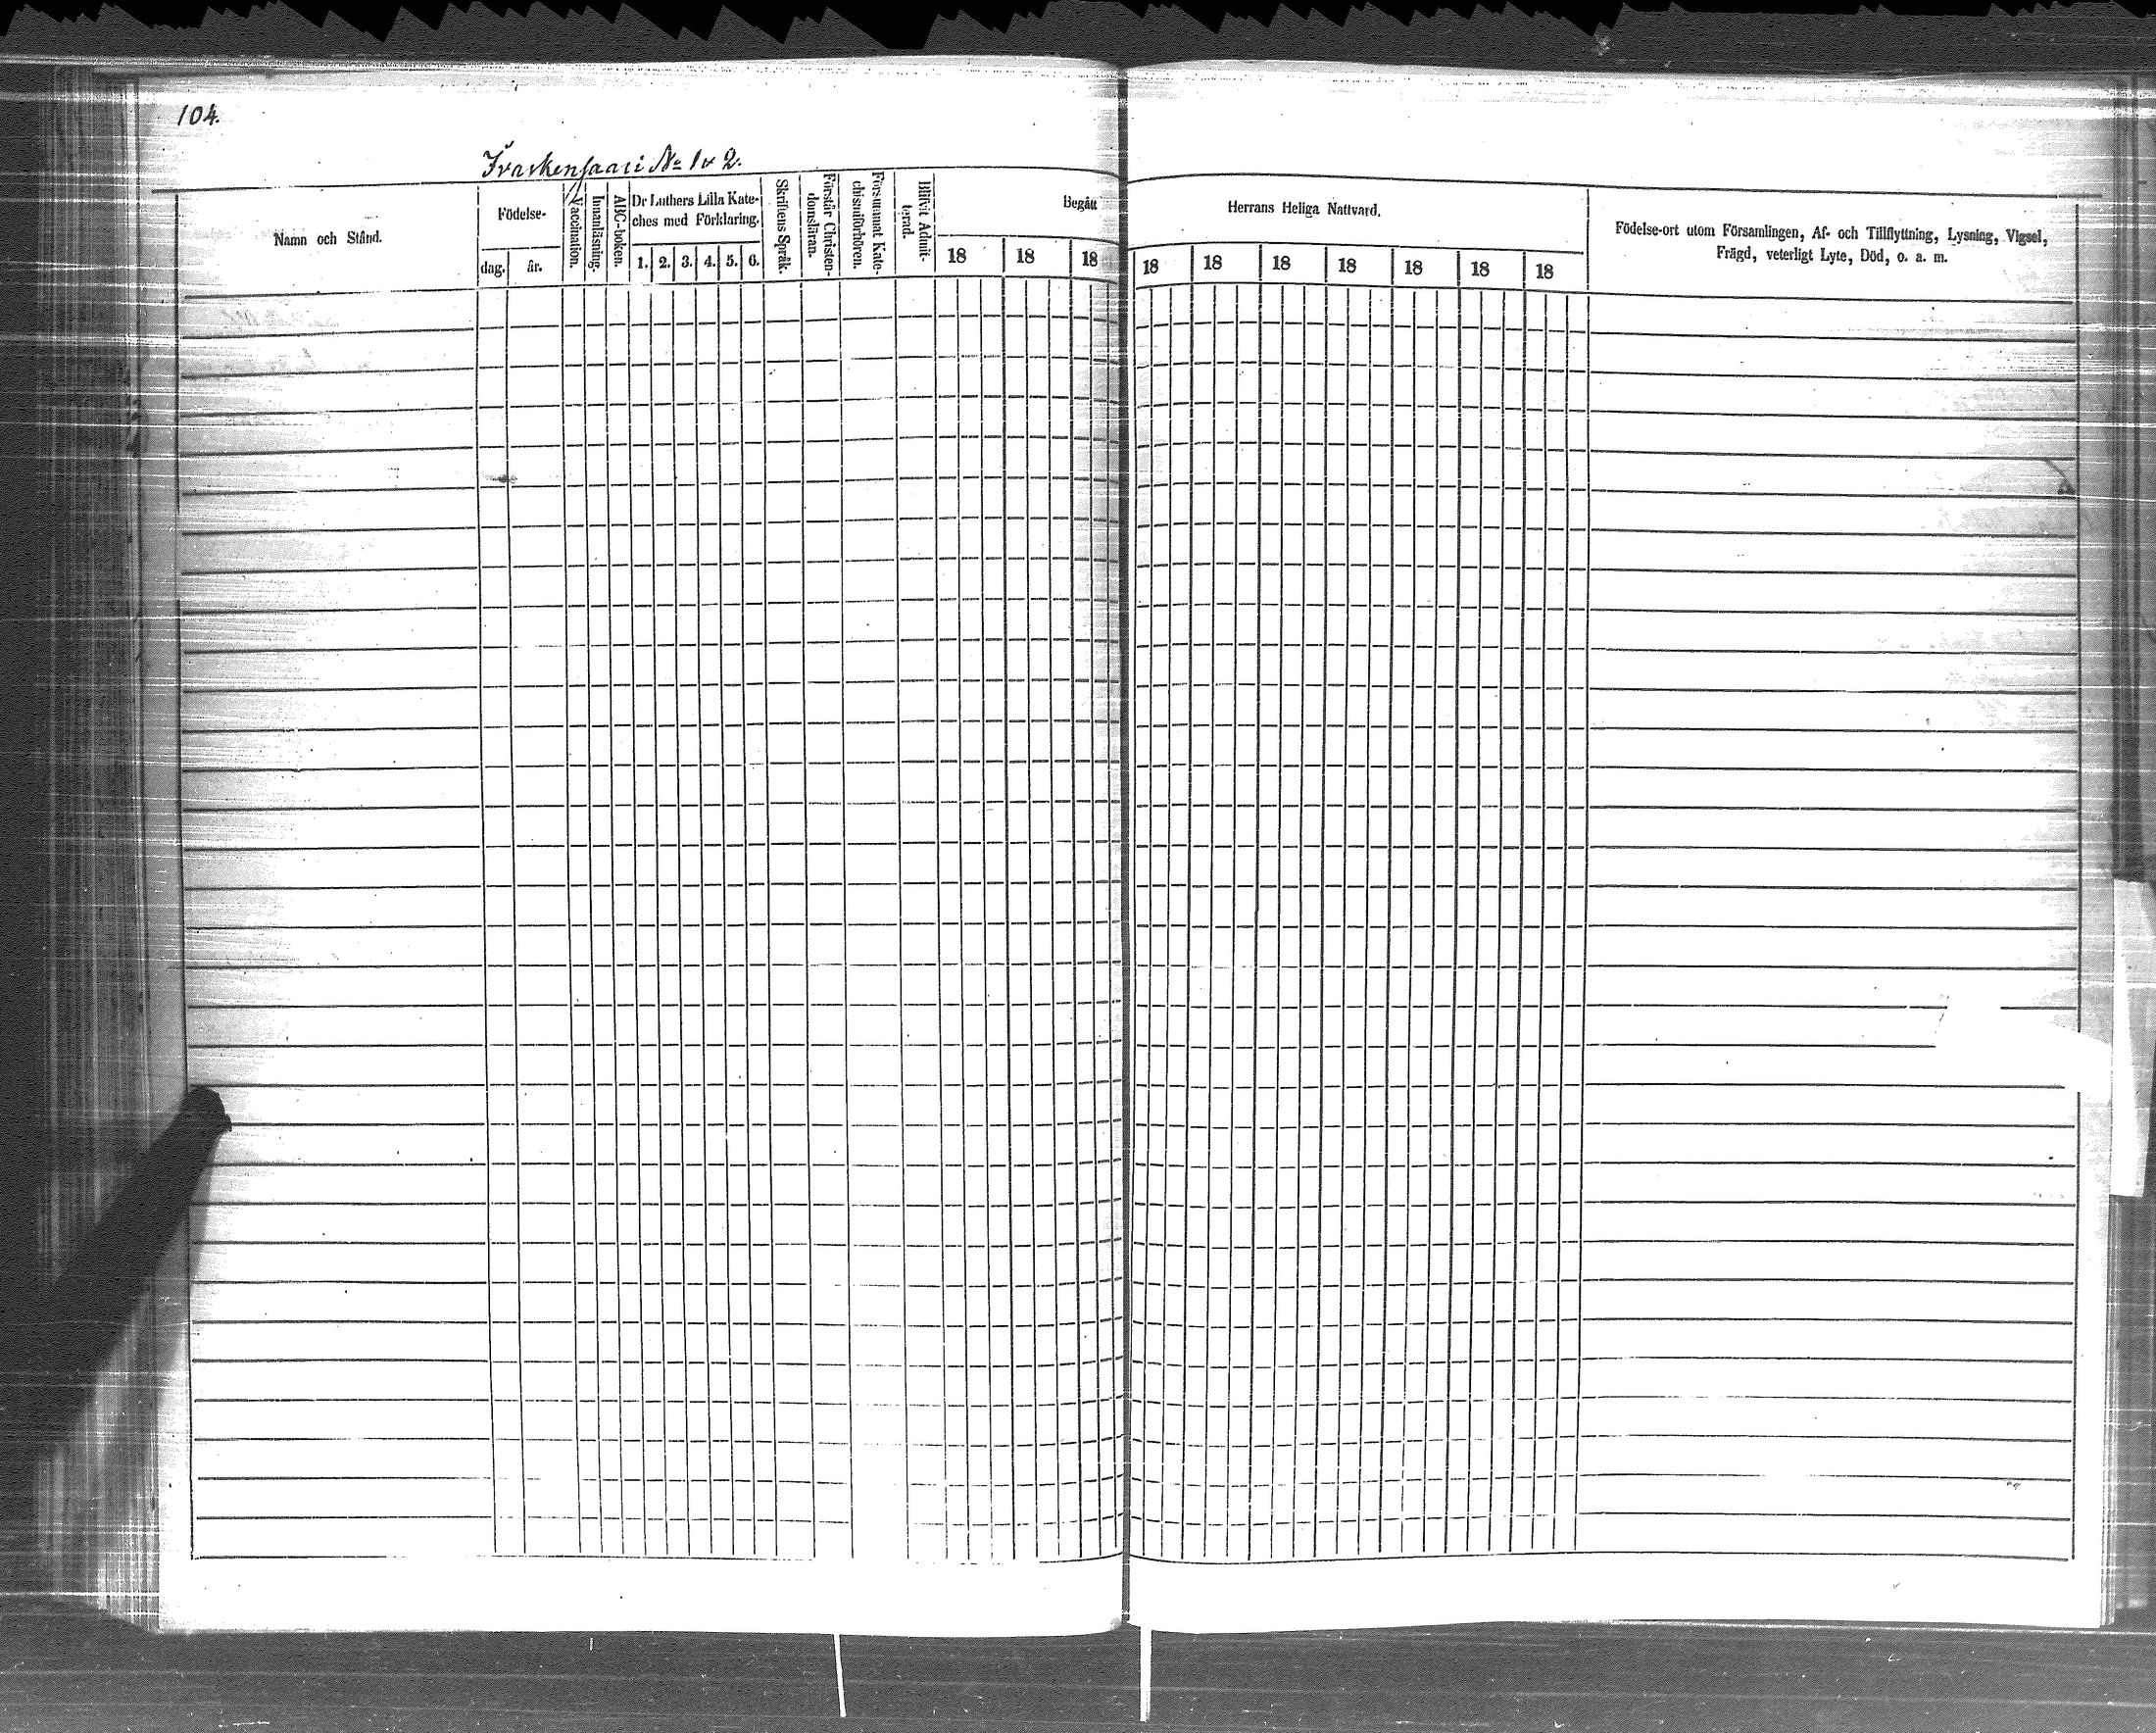 104.
№ 1 & 2.
Namn och Stånd.
Födelse-
dag.
år.
Vaccination.
Innanläsning.
ABC-boken.
Dr Luthers Lilla Kate-
ches med Förklaring.
1. 2. 3. 4. 5. 6.
Skriftens Språk.
Förstår Christen-
domsläran.
Försummat Kate-
chismiförhören.
Blifvit Admit-
terad.
Begått
18 18 18
Herrans Heliga Nattvard.
18 18 18 18 18 18 18
Födelse-ort utom Församlingen, Af- och Tillflyttning, Lysning, Vigsel,
Frägd, veterligt Lyte, Död, o. a. m.